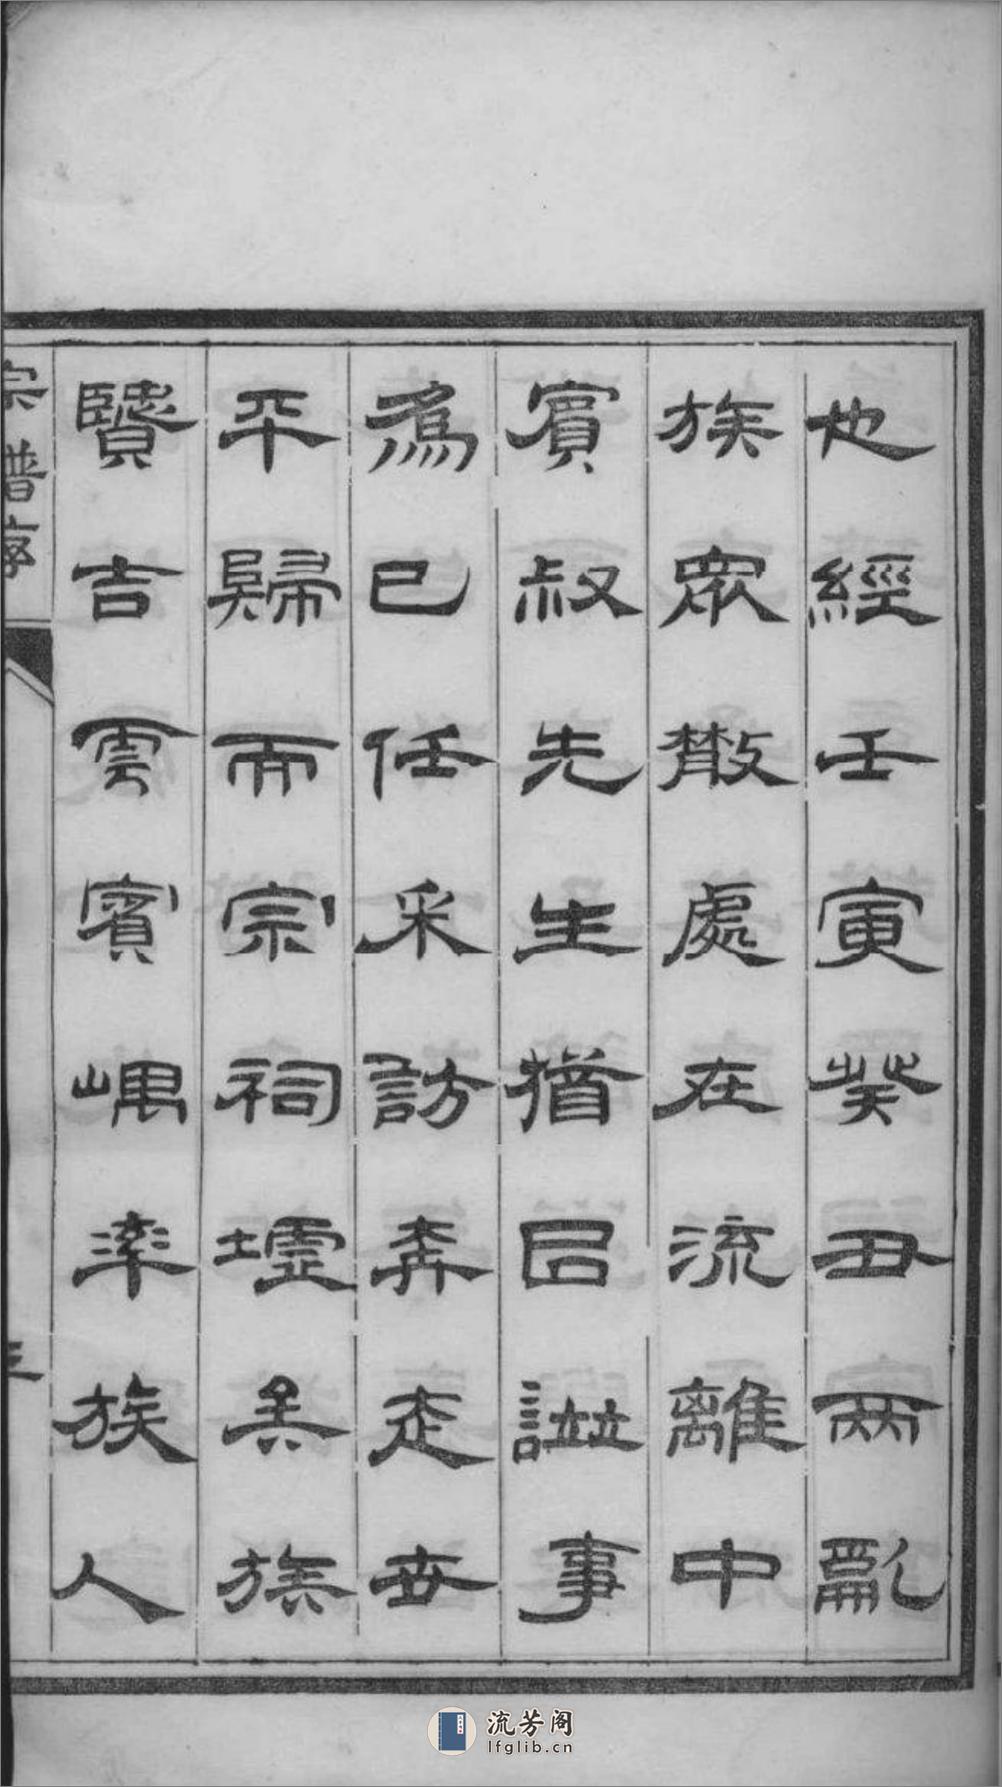 也經壬寅癸丑兩亂
族眾散處在流離中
賓叔先生猶以譜事
為己任采訪奔走世
平歸而宗祠墟矣族
賢吉雲賓嵎率族人
宗譜序
三
流芳阁
lfglib.cn